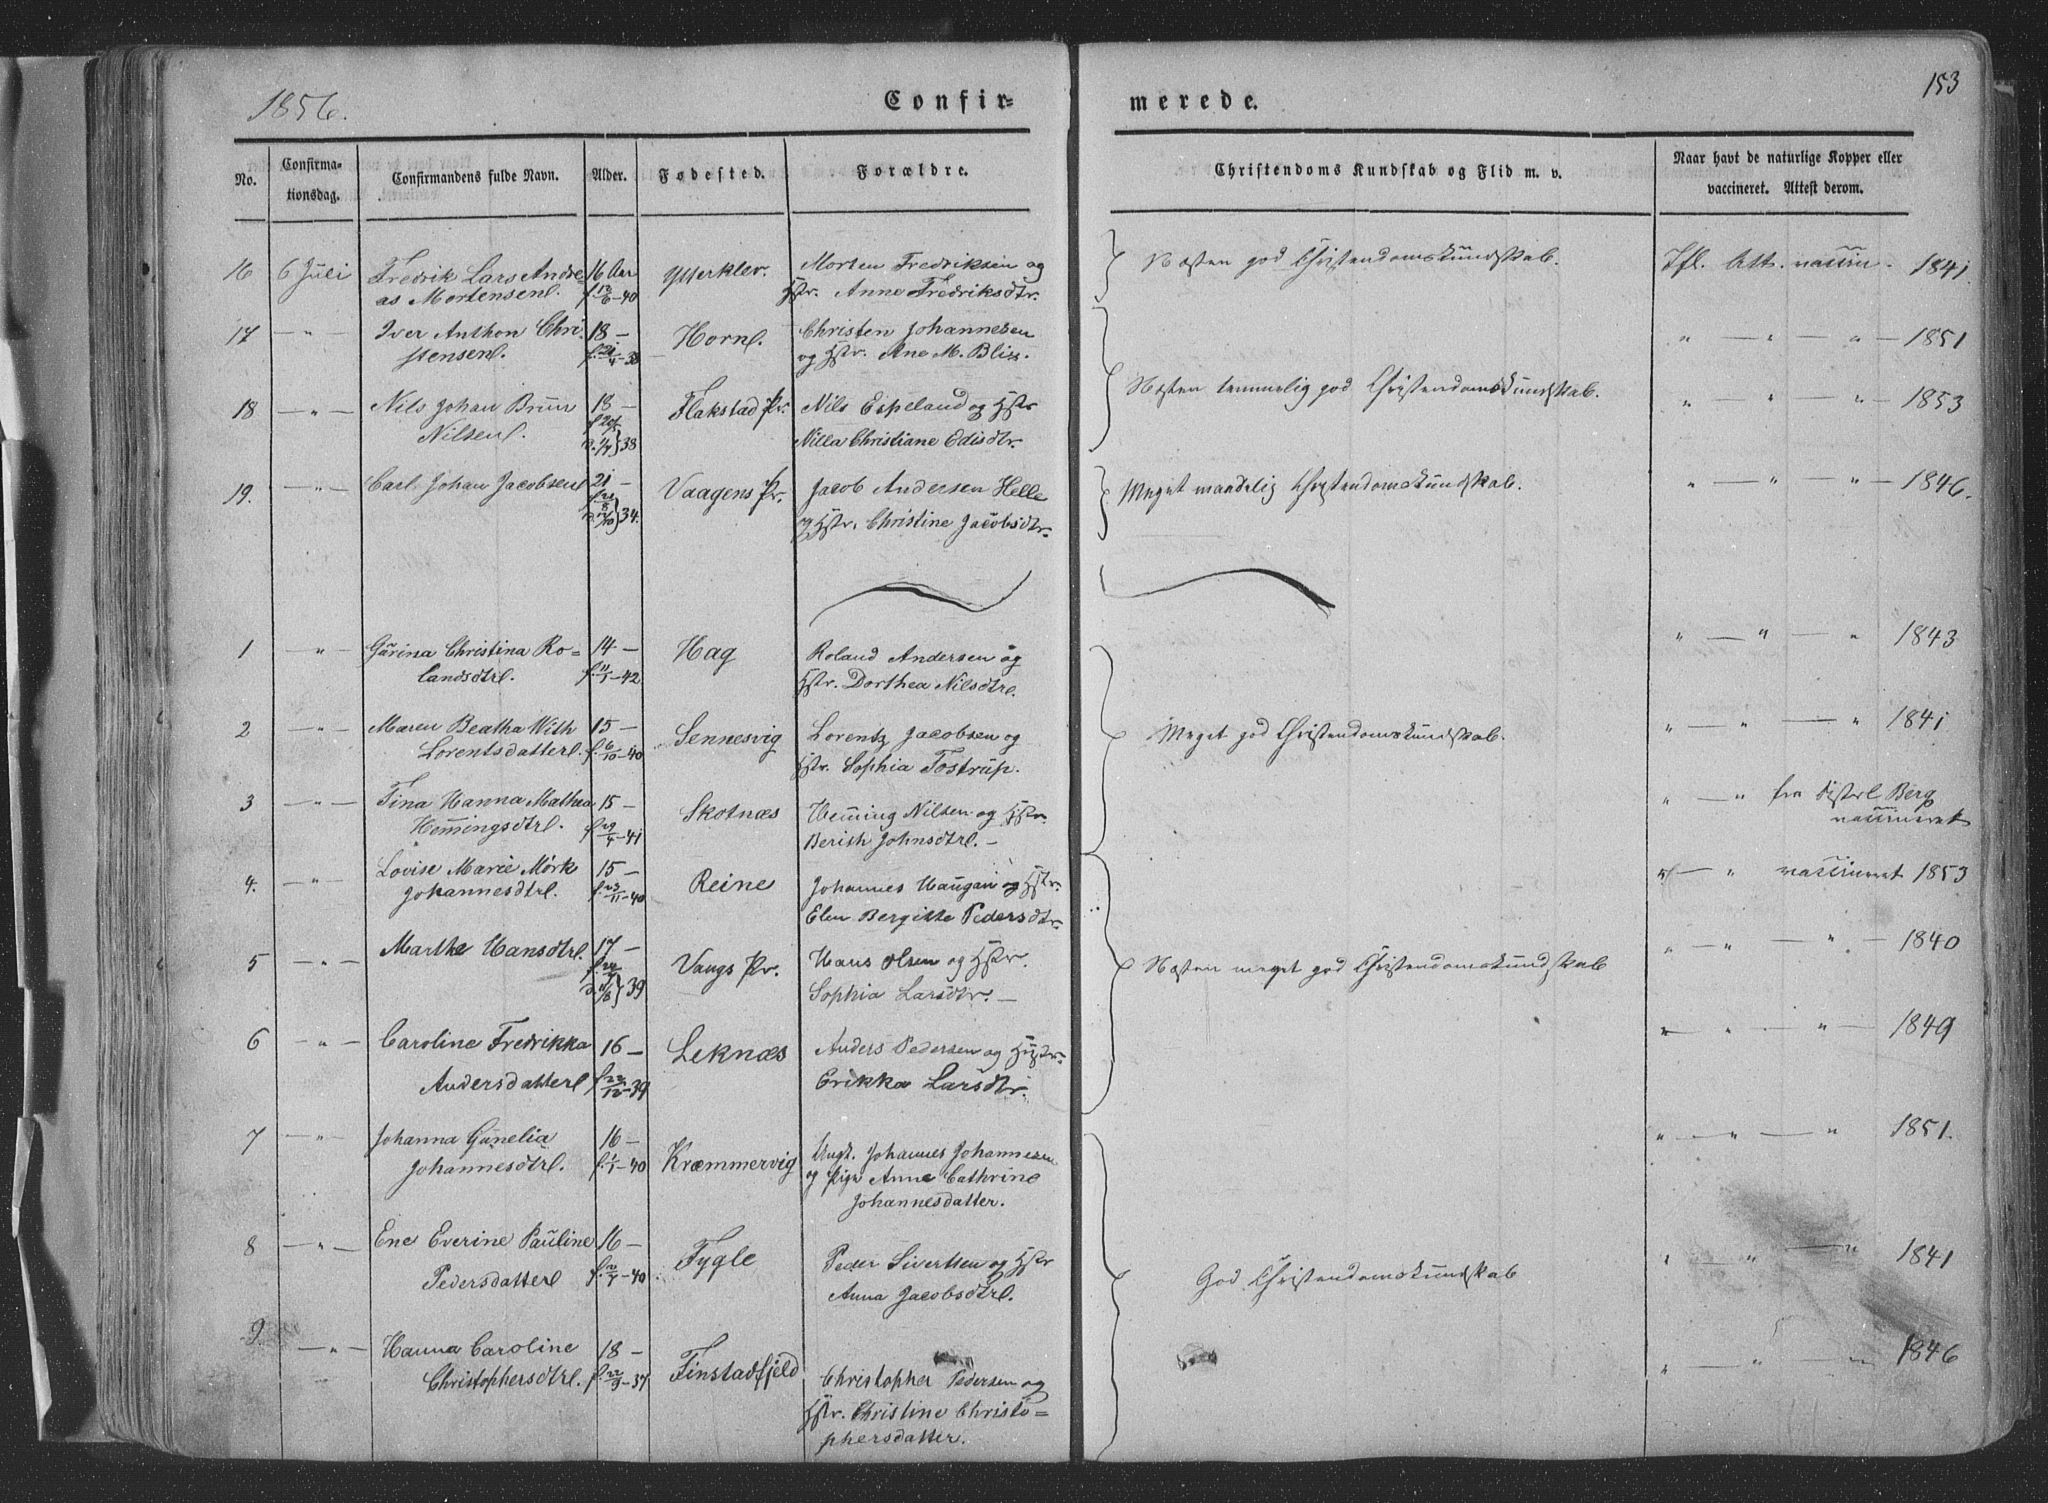 153
1856.
Confir-
merede.
No.
Confirma-
tionsdag.
Confirmandens fulde Navn.
Alder.
Fødested.
Forældre.
Christendoms Kundskab og Flid m. v.
Naar havt de naturlige Kopper eller
vaccineret. Attest derom.
16 6 Juli Fredrik Lars Andre- 16 Aar Ytterklev. Morten Fredriksen og Næsten god Christendomskundskab. Ifl. Att. vaccin. 1841.
as Mortensen. f. 12/6-40 Hstr. Anne Fredriksdtr.
17 — " — Iver Anthon Chri- 18 — Horn. Christen Johannesen " — " — " — 1851
stensen. f. 21/4-38 og Hstr. Ane M. Blix.
Næsten temmelig god Christendomskundskab.
18 — " — Nils Johan Bruun 18 — Flakstad Pr. Nils Espeland og Hstr " " — " — 1853
Nilsen. 38 Nilla Christiane Edisdtr.
19. — " — Carl Johan Jacobsen 21 — Vaagens Pr. Jacob Andersen Helle Meget maadelig Christendomskundskab. " — " — " — 1846.
34. og Hstr. Christine Jacobsdtr.
1 — " — Gurina Christina Ro- 14 — Hag Roland Andersen og " — " — " 1843
landsdtr. f. 11/1-42 Hstr. Dorthea Nilsdtr.
2 — " — Maren Beatha With 15 — Sennesvig Lorentz Jacobsen og Meget god Christendomskundskab. " — " — " 1841
Lorentsdatter f. 6/10-40 Hstr. Sophia Tostrup.
3 — " — Tina Hanna Mathea 15 — Skotnæs Hemming Nilsen og Hstr. " — " fra Berg
Hemmingsdtr. f. 29/4-41 Berith Johnsdtr. — vaccineret
4. — " — Lovise Marie Mörk 15 — Reine Johannes Haugan og Hstr. " — " vaccineret 1853
Johannesdtr. f. 23/11-40 Elen Bergitte Pedersdtr.
5 — " — Marthe Hansdtr. 17 — Vangs Pr. Hans Olsen og Hstr. Næsten meget god Christendomskundskab " — " — " — 1840
39 Sophia Larsdtr. —
6 — " — Caroline Fredrikka 16 — Leknæs Anders Pedersen og Hstr. " — " — " — 1849
Andersdatter f. 22/12-39 Erikka Larsdtr.
7 — " — Johanna Gunelia 16 — Kræmmervig Ungk. Johannes Johannesen " — " — " 1851.
Johannesdtr. f. 1/1-40 og Pige Anne Cathrine
Johannesdatter.
8 — " — Ene Everine Pauline 16 — Fygle Peder Sivertsen og Hstr God Christendomskundskab " " — " 1841
Pedersdatter f. 2/4-40. Anna Jacobsdtr.
9. — " — Hanna Caroline 18 — Finstadfjeld Christopher Pedersen og " — " — " 1846
Christophersdtr. f. 22/9-37 Hstr. Christine Christo-
phersdatter.